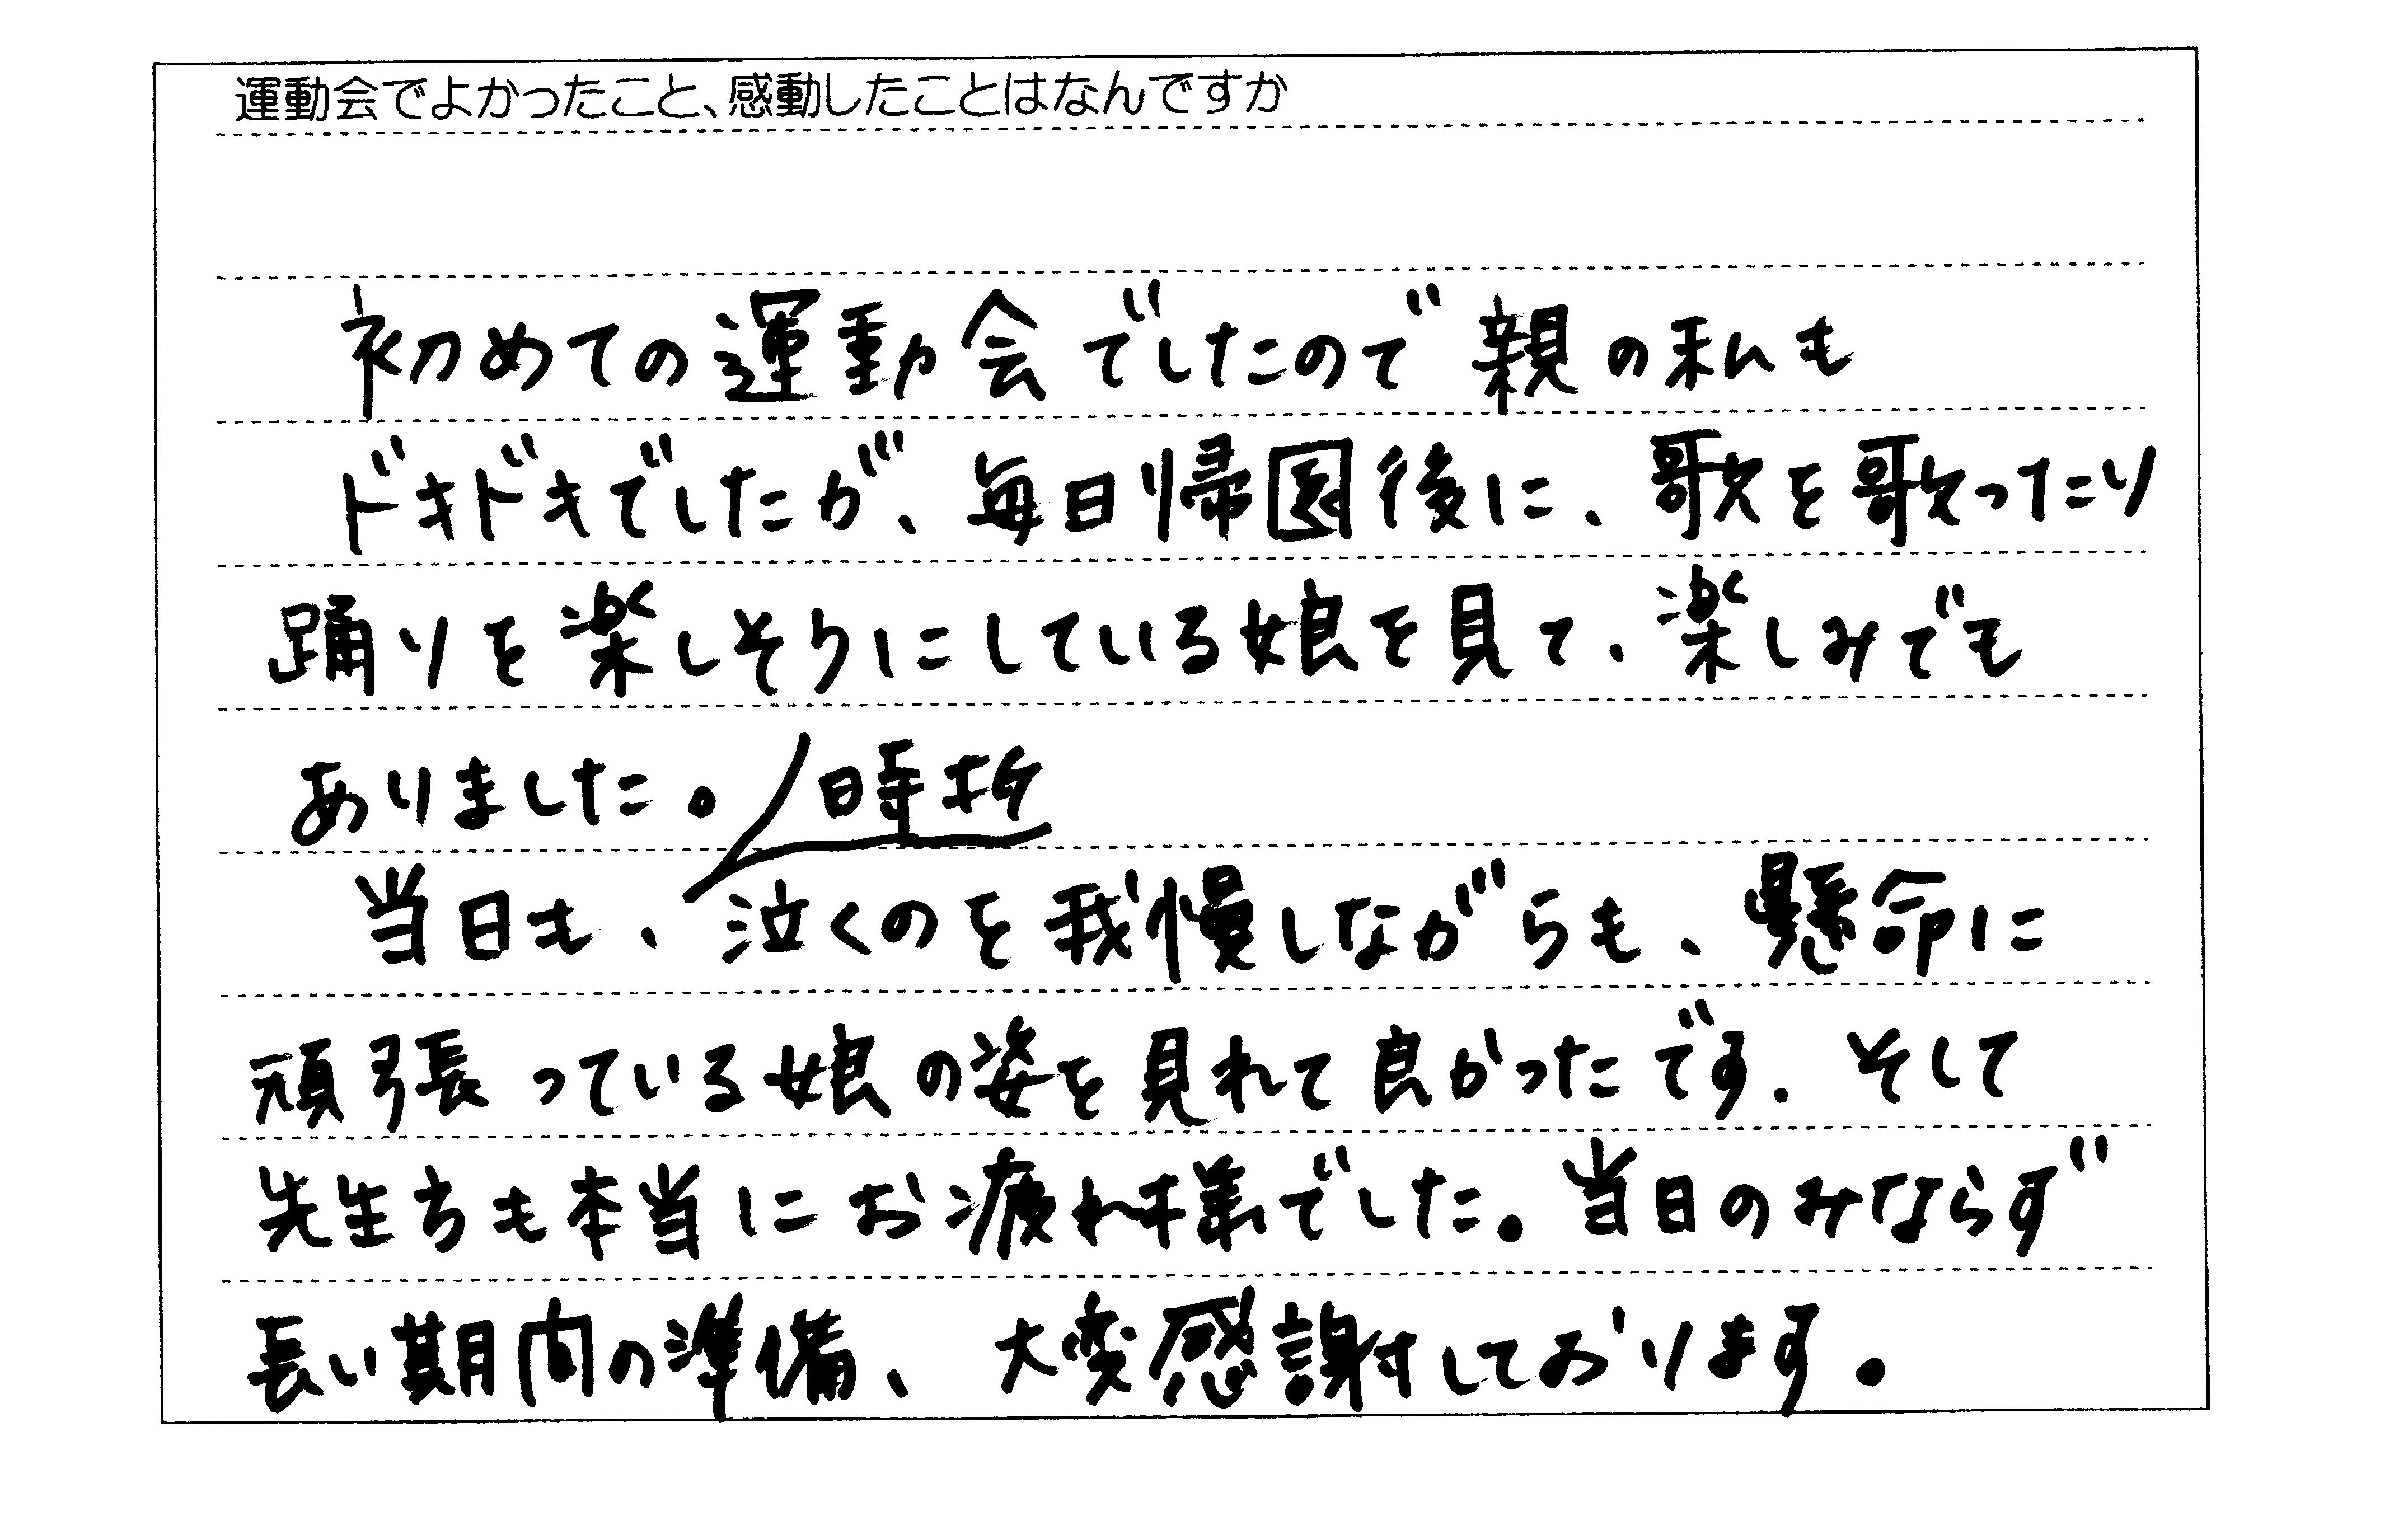 運動会でよかったこと、感動したことはなんですか
初めての運動会でしたので親の私も
ドキドキでしたが、毎日帰園後に、歌を歌ったり
踊りを楽しそうにしている娘を見て、楽しみでも
ありました。
時折
当日も、泣くのを我慢しながらも、懸命に
頑張っている娘の姿を見れて良かったです。そして
先生方も本当にお疲れ様でした。当日のみならず
長い期間の準備、大変感謝しております。